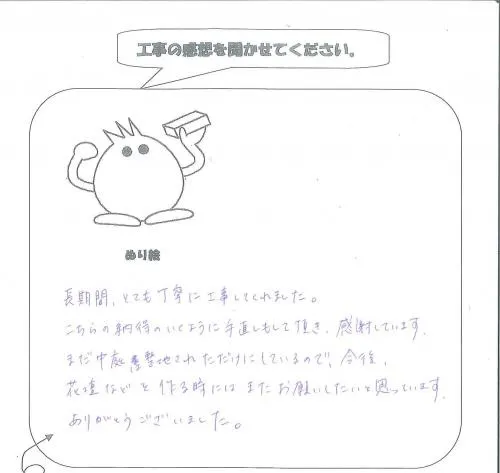 工事の感想を聞かせてください。
ぬり絵
長期間、とても丁寧に工事してくれました。
こちらの納得のいくように手直しもして頂き、感謝しています。
まだ中庭 整地されただけにしているので、今後、
花壇などを作る時にはまたお願いしたいと思っています。
ありがとうございました。